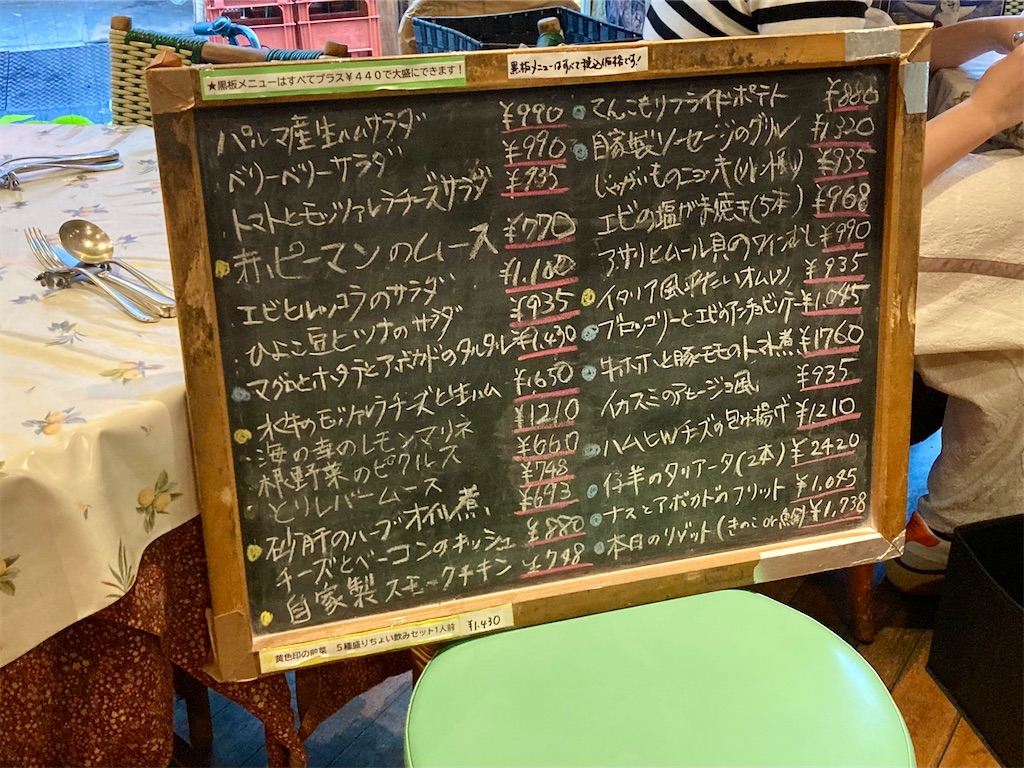 ★黒板メニューはすべてプラス¥440で大盛にできます!
黒板メニューはすべて税込価格です!
パルマ産生ハムサラダ ¥990
ベリーベリーサラダ ¥990
トマトとモッツァレラチーズサラダ ¥935
赤ピーマンのムース ¥770
エビとルッコラのサラダ ¥1.100
ひよこ豆とツナのサラダ ¥935
マグロとホタテとアボカドのタルタル ¥1.430
水牛のモッツァレラチーズと生ハム ¥1,650
海の幸のレモンマリネ ¥1210
根野菜のピクルス ¥660
とりレバームース ¥748
砂肝のハーブオイル煮 ¥693
チーズとベーコンのキッシュ ¥880
自家製スモークチキン ¥748
てんこもりフライドポテト ¥880
自家製ソーセージのグリル ¥1320
じゃがいものニョッキ ¥935
エビの塩がま焼き(5本) ¥968
アサリとムール貝のワインむし ¥990
イタリア風平たいオムレツ ¥935
ブロッコリーとエビのアンチョビソテー ¥1.045
牛ホホと豚モモのトマト煮 ¥1760
イカスミのアヒージョ風 ¥935
ハムとWチーズの包み揚げ ¥1210
仔羊のタリアータ(2本) ¥2420
ナスとアボカドのフリット ¥1.045
本日のリゾット(きのこor魚介) ¥1,738
黄色印の前菜 5種盛りちょい飲みセット1人前 ¥1.430